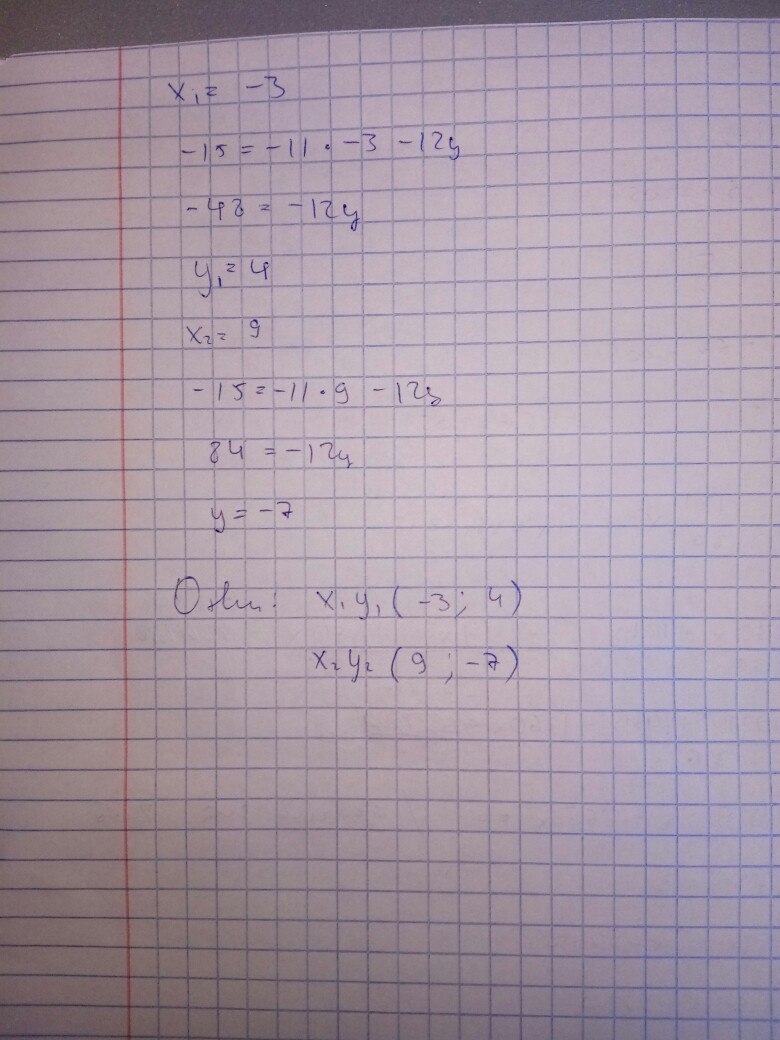 x₁ = -3
-15 = -11 · -3 -12y
-48 = -12y
y₁ = 4
x₂ = 9
-15 = -11 · 9 -12y
84 = -12y
y = -7
Ответ: x₁y₁ (-3; 4)
x₂y₂ (9; -7)